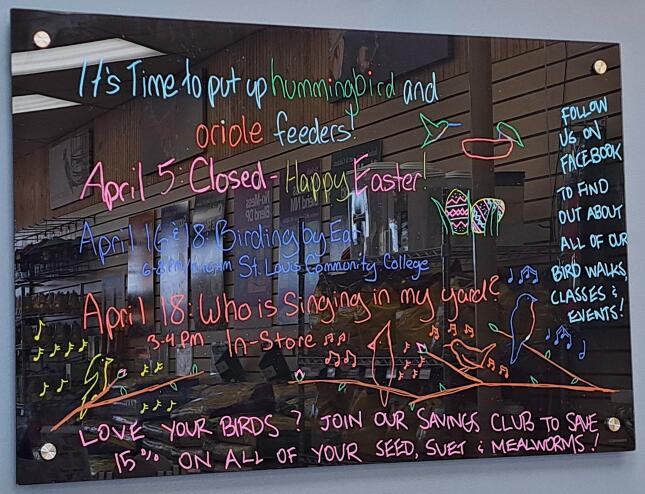 It's Time to put up hummingbird and
oriole feeders!
April 5: Closed - Happy Easter!
April 16 & 18: Birding by Ear
St. Louis Community College
April 18: Who is Singing in my yard?
3-4 pm In-Store
LOVE YOUR BIRDS? JOIN OUR SAVINGS CLUB TO SAVE
15% ON ALL OF YOUR SEED, SUET & MEALWORMS!
FOLLOW
US ON
FACEBOOK
TO FIND
OUT ABOUT
ALL OF OUR
BIRD WALKS,
CLASSES &
EVENTS!